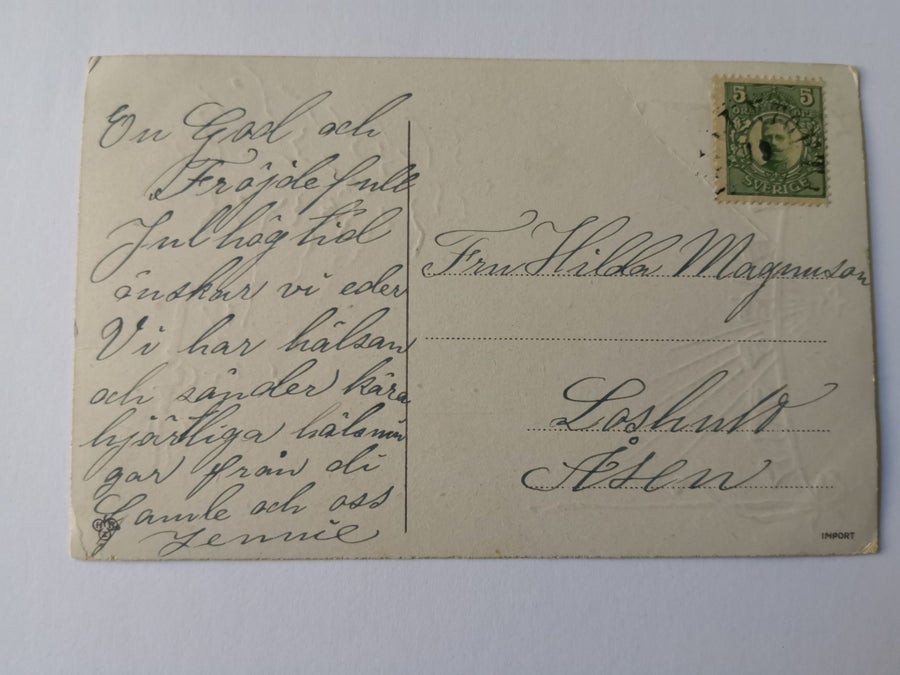 En God och
Fröjdefull
Julhögtid
önskar vi eder
Vi har hälsan
och sänder kära
hjärtliga hälsnin
gar från di
Gamle och oss
Jennie
5 5
SVERIGE
Fru Hilda Magnuson
Loshult
Åsen
IMPORT